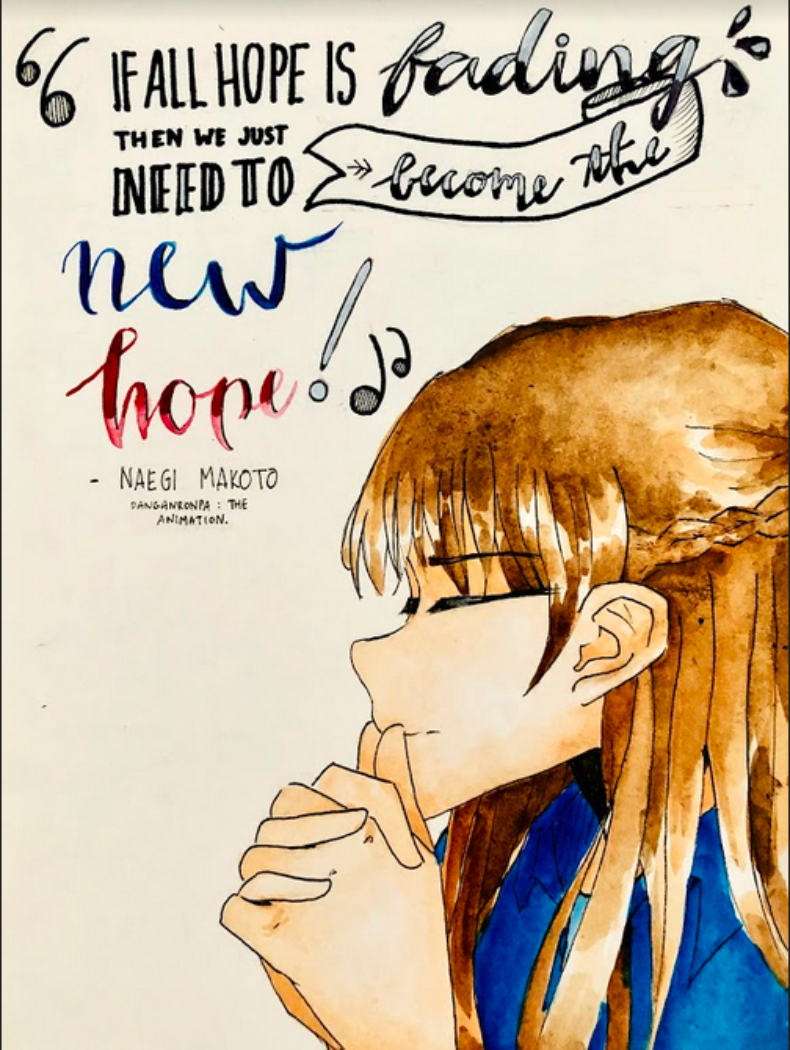 “ IF ALL HOPE IS fading
THEN WE JUST
NEED TO become the
new
hope!
- NAEGI MAKOTO
DANGANRONPA : THE
ANIMATION.